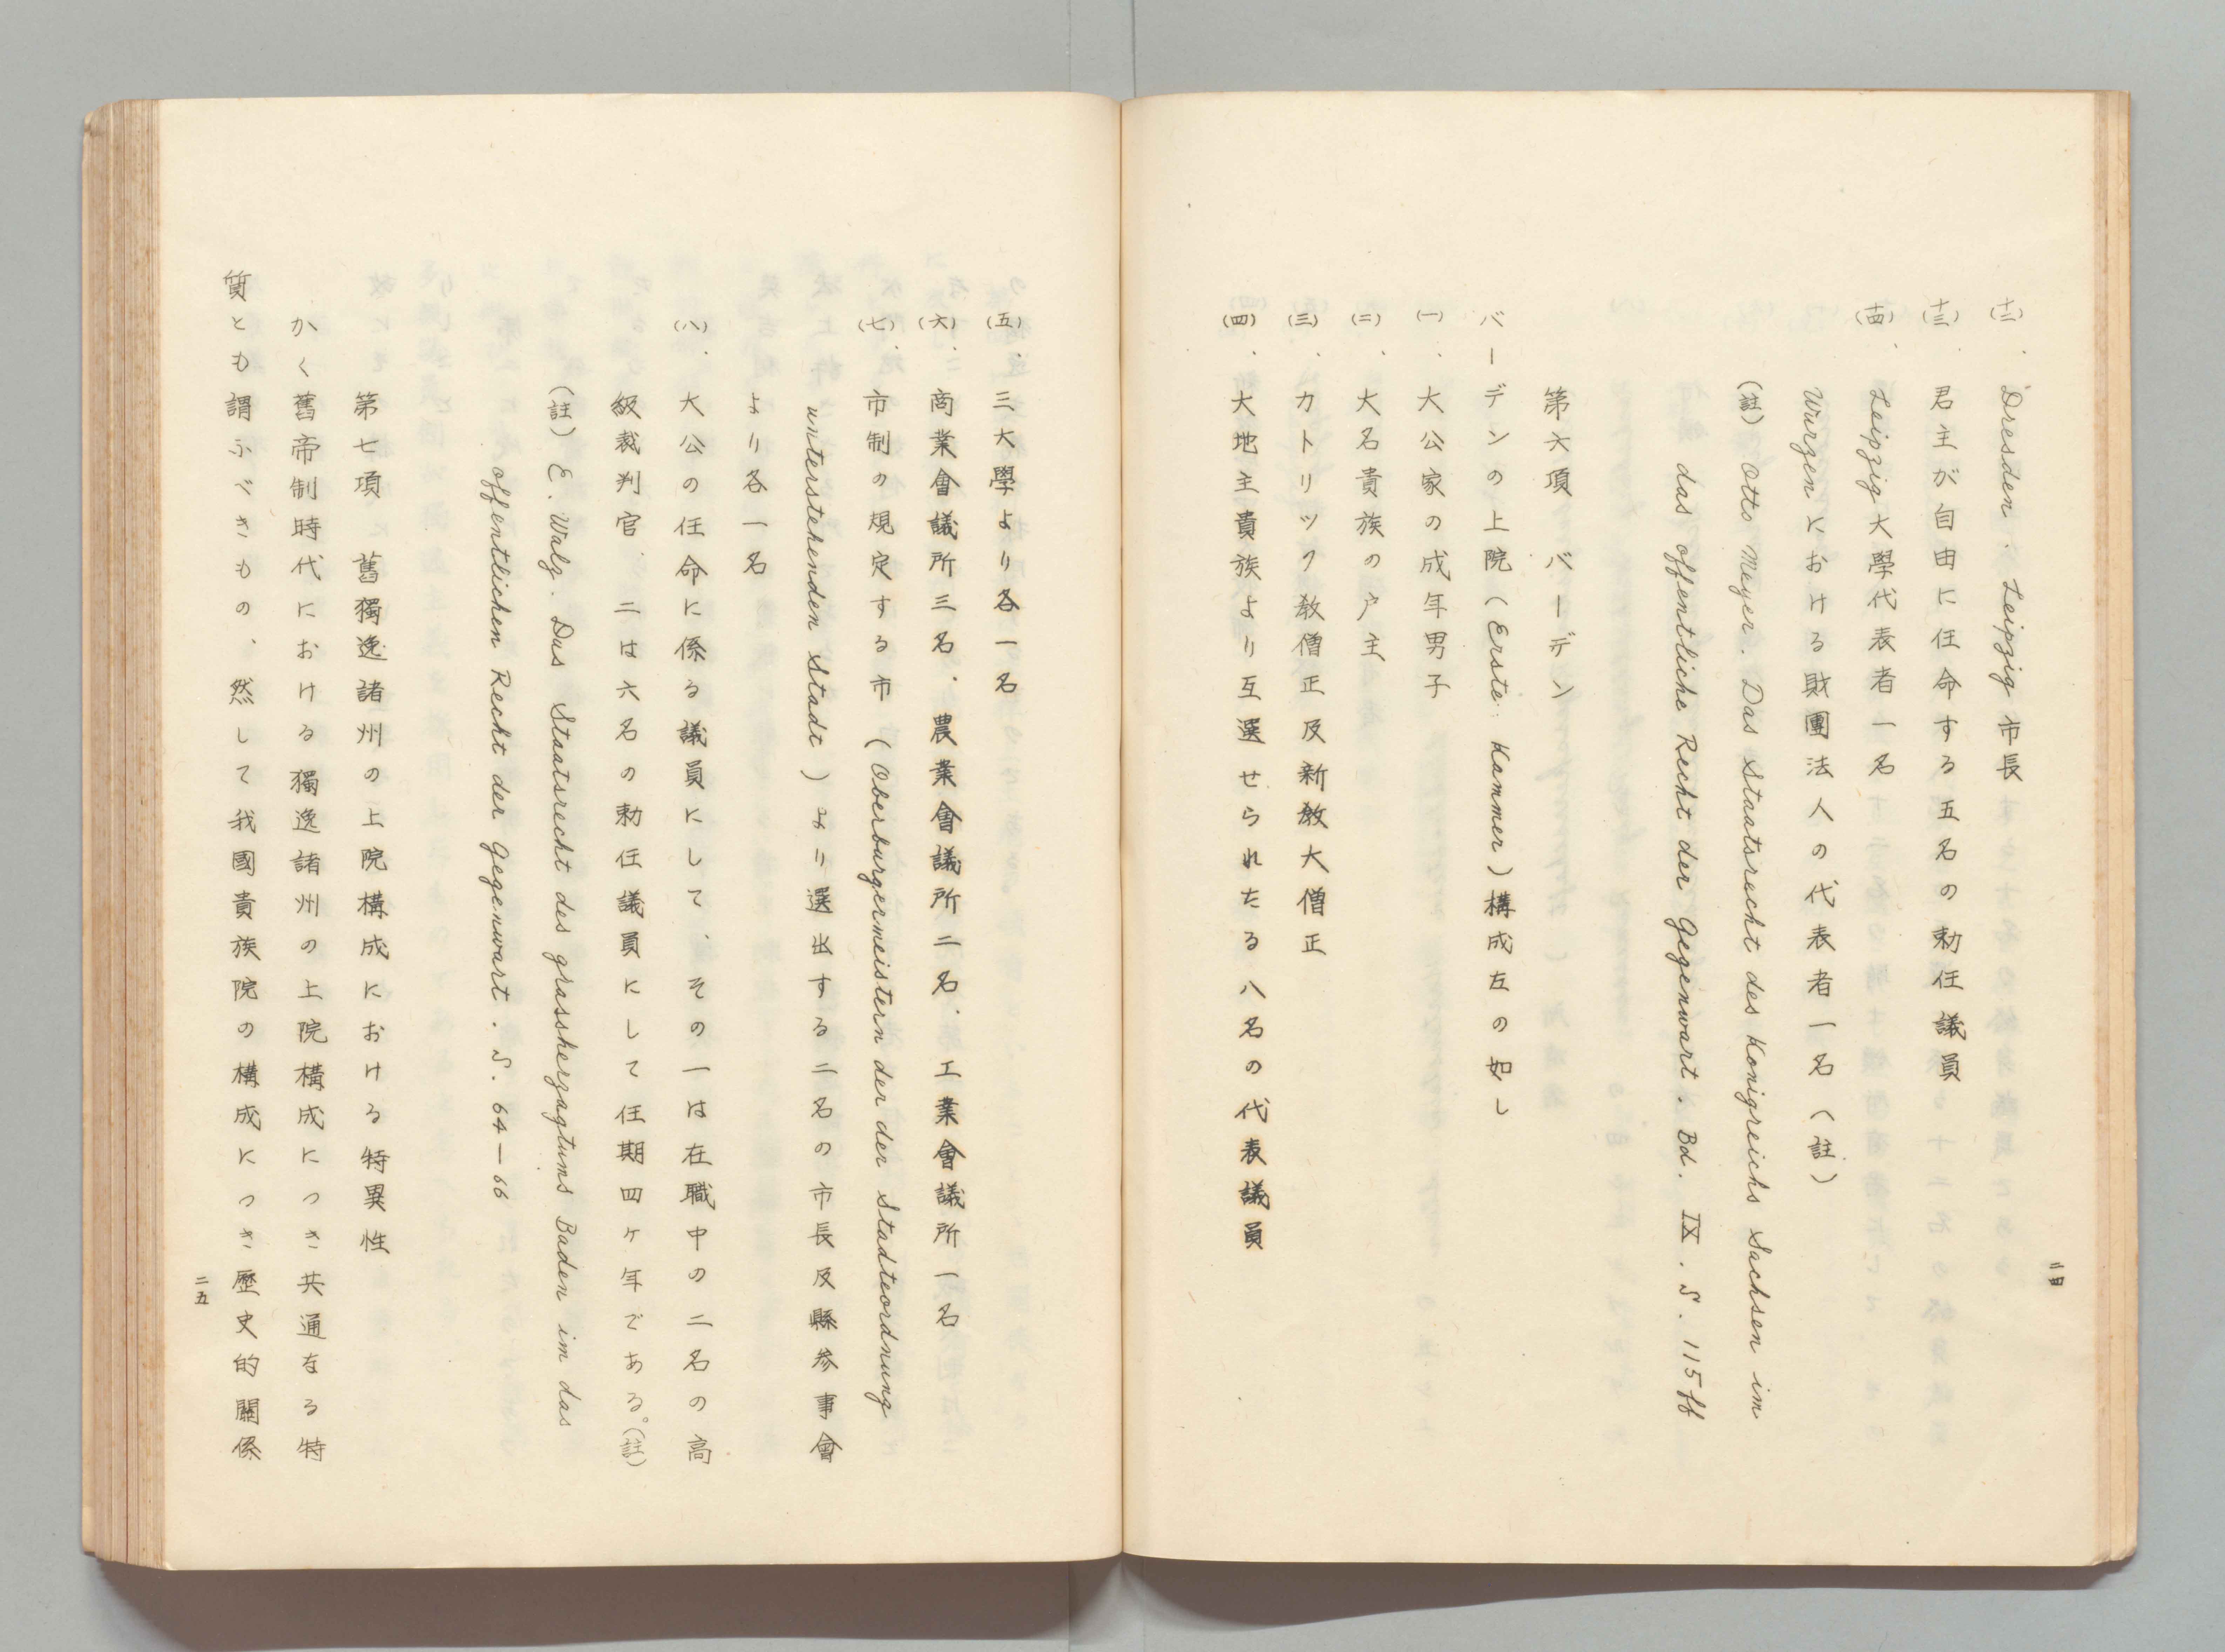 (十二)、Dresden. Leipzig 市長
(十三)、君主が自由に任命する五名の勅任議員
(十四)、Leipzig 大學代表者一名
Wurzen における財團法人の代表者一名(註)
(註) Otto Meyer. Das Staatsrecht des Konigreichs Sachsen im
das offentliche Recht der Gegenwart. Bd. IX. S. 115ff
第六項 バーデン
バーデンの上院(Erste Kammer)構成左の如し
(一)、大公家の成年男子
(二)、大名貴族の戸主
(三)、カトリック教僧正及新教大僧正
(四)、大地主貴族より互選せられたる八名の代表議員
二四
(五)、三大學より各一名
(六)、商業會議所三名、農業會議所二名、工業會議所一名
(七)、市制の規定する市(Oberburgermeistern der der Stadteordnung
unterstehenden Stadt)より選出する二名の市長及縣参事會
より各一名
(八)、大公の任命に係る議員にして、その一は在職中の二名の高
級裁判官、二は六名の勅任議員にして任期四ケ年である。(註)
(註) E. Walz. Das Staatsrecht des grassherzagtums Baden im das
offentlichen Recht der Gegenwart. S. 64—66
第七項 舊獨逸諸州の上院構成における特異性
かく舊帝制時代における獨逸諸州の上院構成につき共通なる特
質とも謂ふべきもの、然して我國貴族院の構成につき歴史的關係
二五